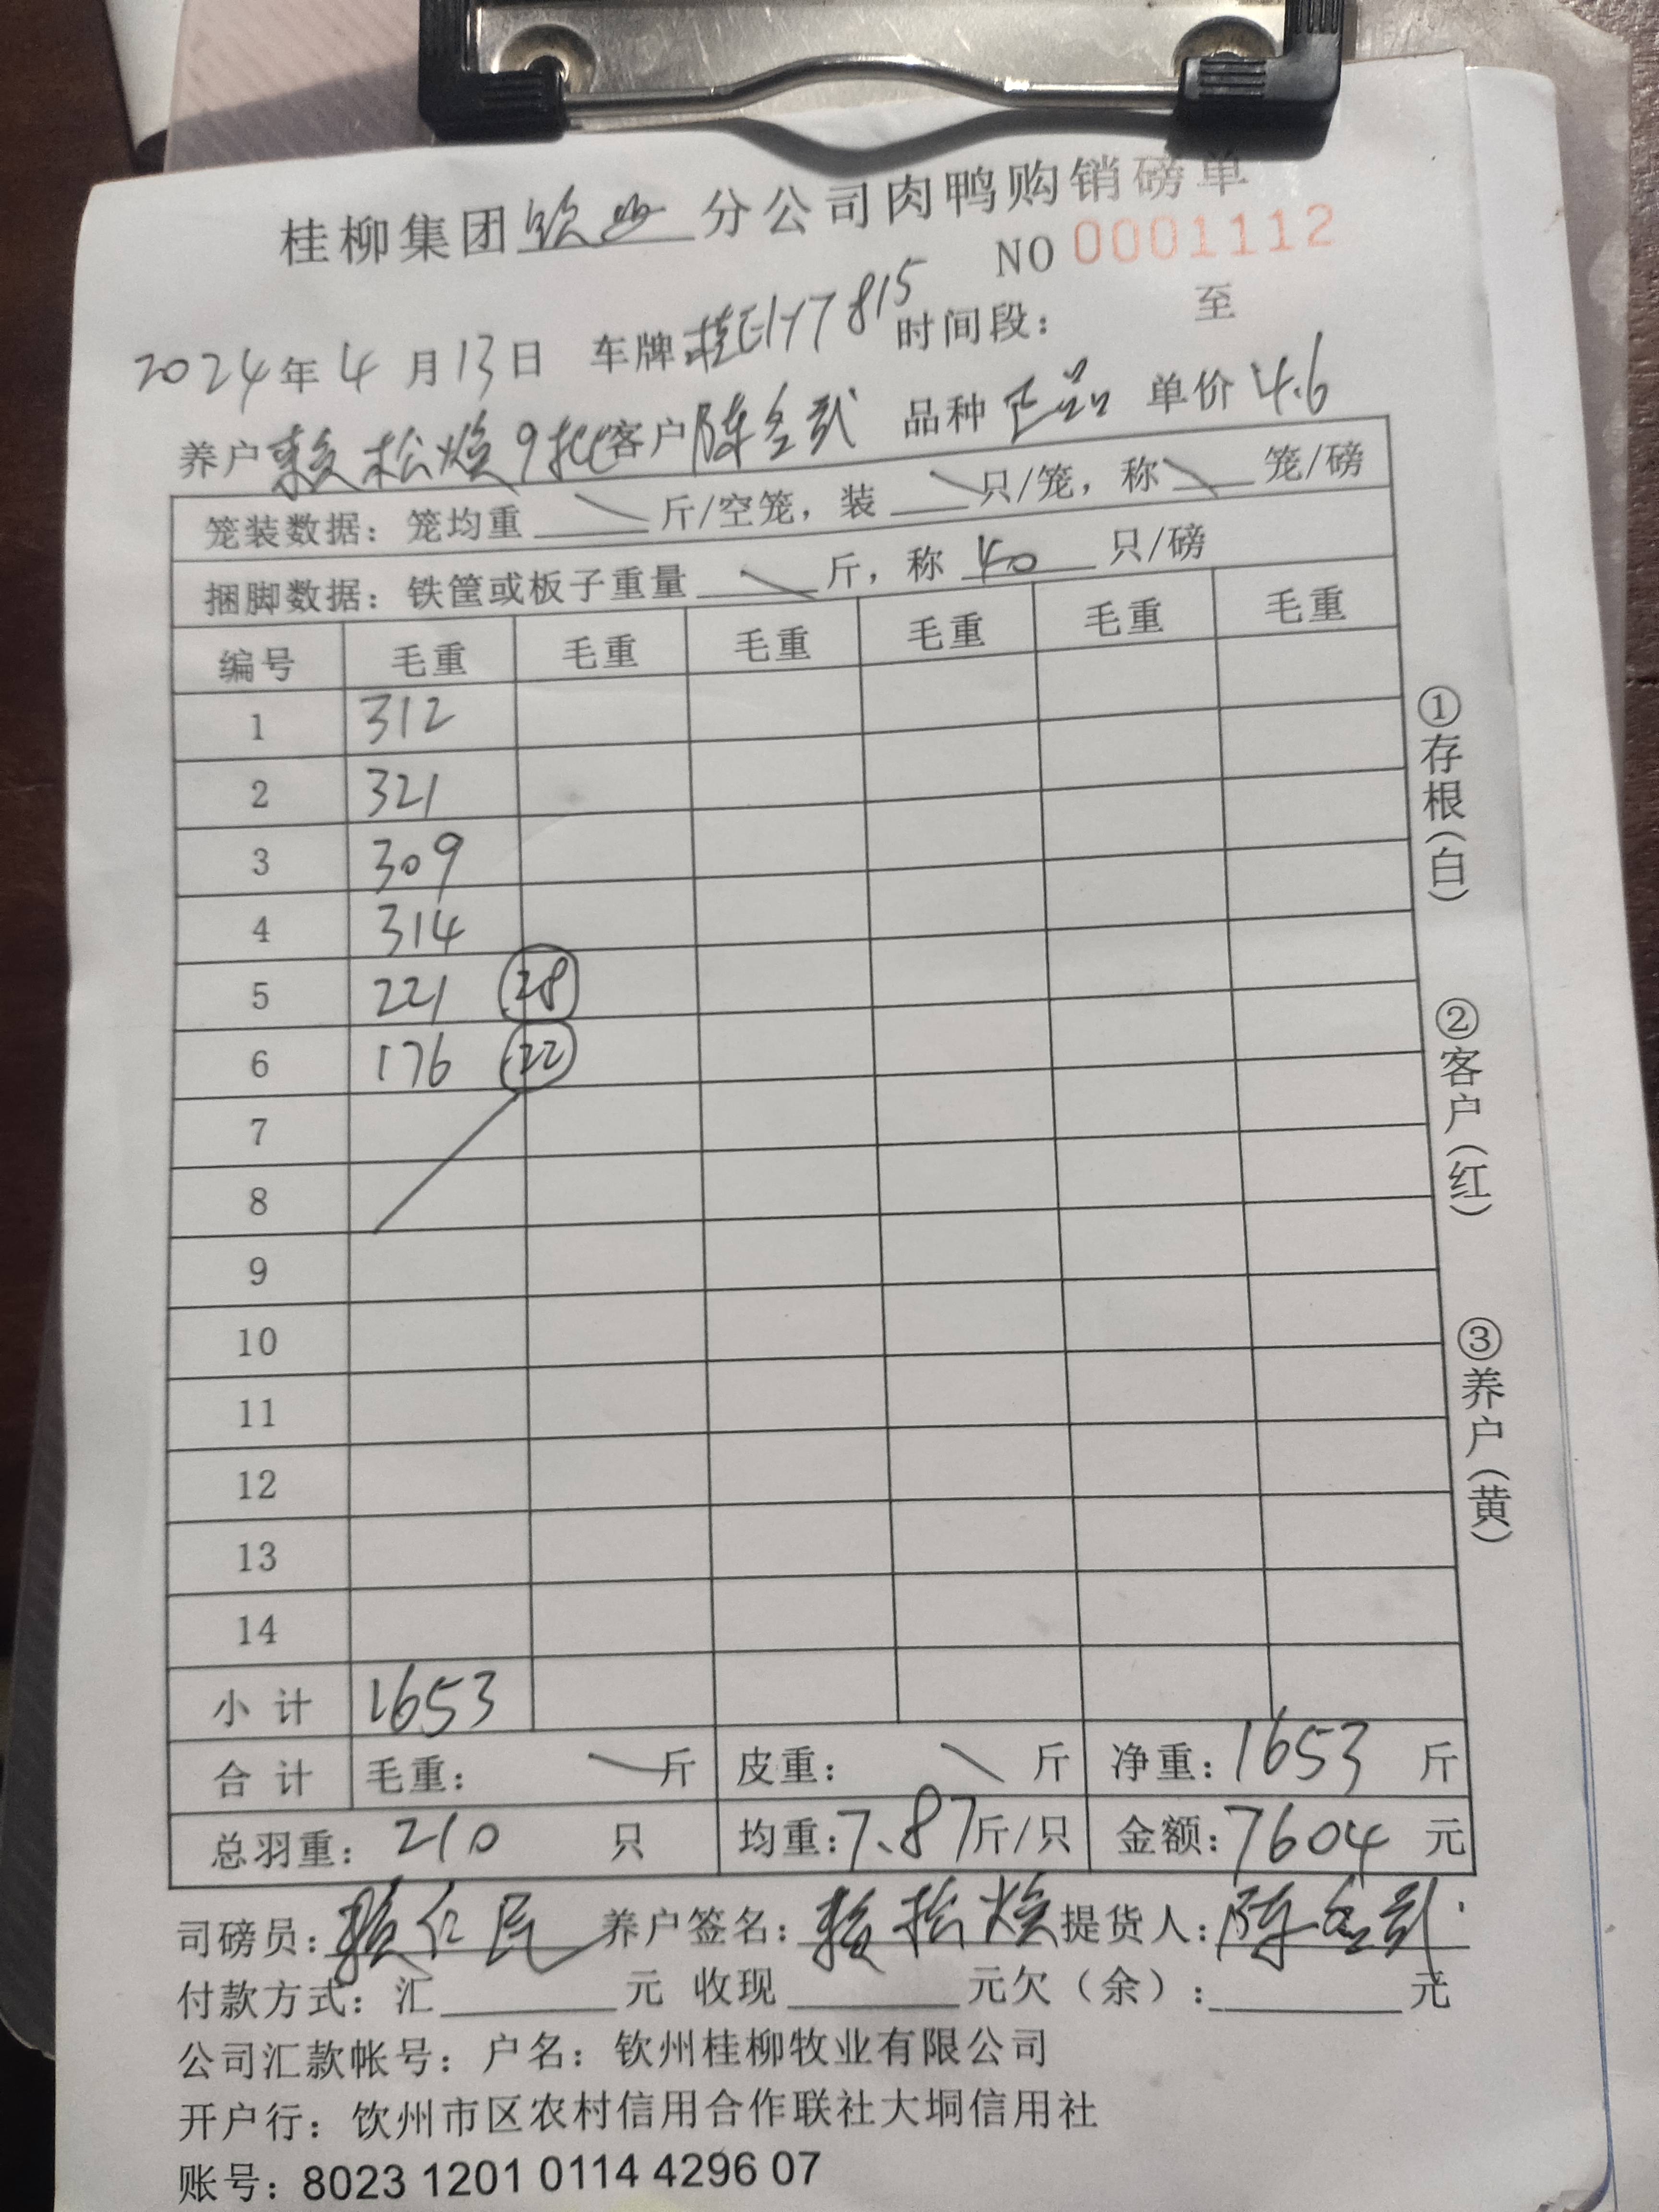 桂柳集团钦州分公司肉鸭购销磅单
NO 0001112
2024年4月13日 车牌桂E1Y7815 时间段: 至
养户赖松焕9批 客户陈 武 品种正品 单价4.6
笼装数据: 笼均重 \ 斤/空笼, 装 \ 只/笼, 称 \ 笼/磅
捆脚数据: 铁筐或板子重量 \ 斤, 称 40 只/磅
编号 毛重 毛重 毛重 毛重 毛重 毛重
1 312
2 321
3 309
4 314
5 221 28
6 176 22
7
8
9
10
11
12
13
14
小计 1653
合计 毛重: \ 斤 皮重: \ 斤 净重: 1653 斤
总羽重: 210 只 均重: 7.87斤/只 金额: 7604 元
司磅员: 赖仁民 养户签名: 赖松焕 提货人: 陈 武
付款方式: 汇______元 收现______元欠(余):______元
公司汇款帐号: 户名: 钦州桂柳牧业有限公司
开户行: 钦州市区农村信用合作联社大垌信用社
账号: 8023 1201 0114 4296 07
①存根(白)
②客户(红)
③养户(黄)